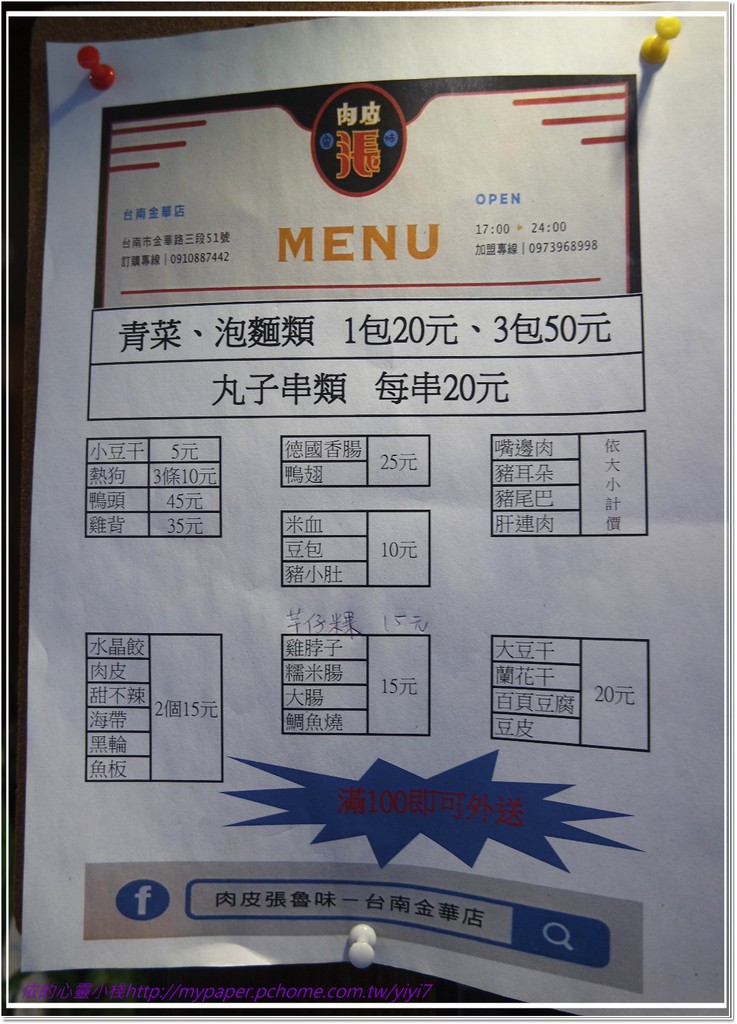 肉皮
張
滷 味
台南金華店
台南市金華路三段51號
訂購專線 | 0910887442
MENU
OPEN
17:00 ▶ 24:00
加盟專線 | 0973968998
青菜、泡麵類 1包20元、3包50元
丸子串類 每串20元
小豆干 5元
熱狗 3條10元
鴨頭 45元
雞背 35元
德國香腸
鴨翅
25元
嘴邊肉
豬耳朵
豬尾巴
肝連肉
依大小計價
米血
豆包
豬小肚
10元
芋仔粿 15元
水晶餃
肉皮
甜不辣
海帶
黑輪
魚板
2個15元
雞脖子
糯米腸
大腸
鯛魚燒
15元
大豆干
蘭花干
百頁豆腐
豆皮
20元
滿100即可外送
f
肉皮張魯味－台南金華店
依的心靈小棧http://mypaper.pchome.com.tw/yiyi7